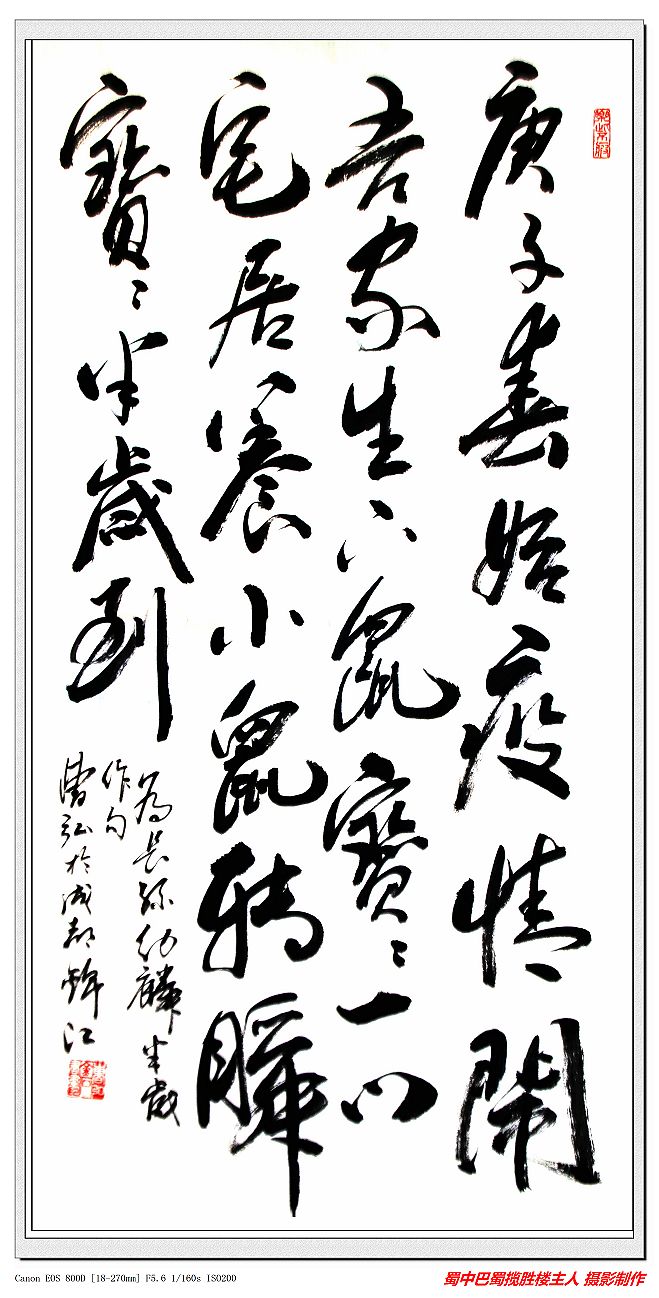 庚子春始疫情閙
吾家生下鼠寶〻一心
宅居養小鼠轉瞬
寶〻半歲到
為長孫幼麟半歲
作句
曹弘於成都錦江
Canon EOS 800D [18-270mm] F5.6 1/160s ISO200
蜀中巴蜀揽胜楼主人 摄影制作